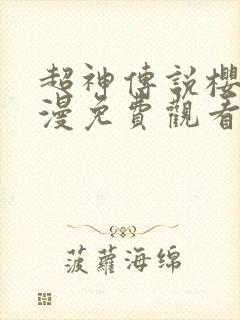 超神傳說櫻
漫免費觀看
菠蘿海綿